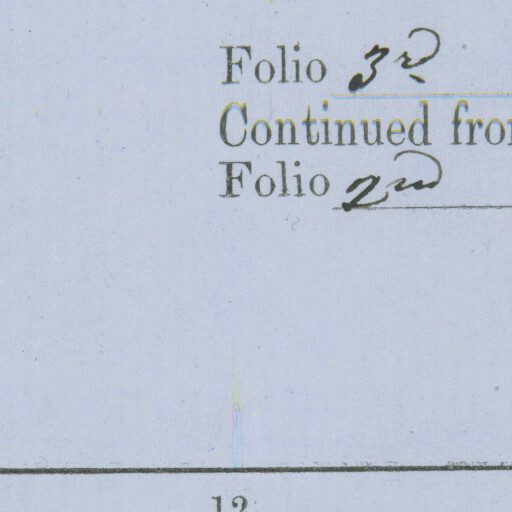 Folio 3rd
Continued from
Folio 2nd
12